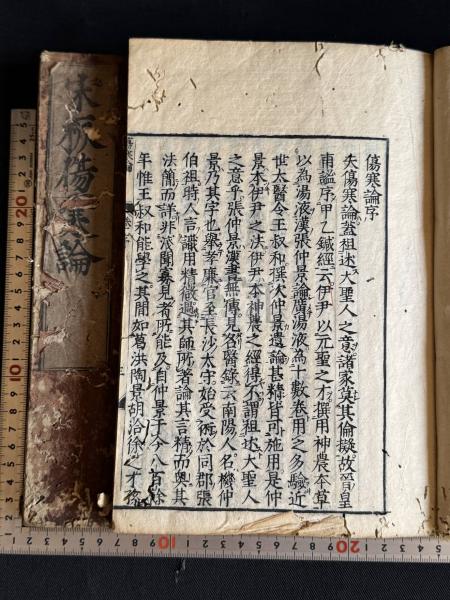 傷寒論序
夫傷寒論蓋祖述大聖人之意諸家莫其倫擬故晉皇
甫謐序甲乙鍼經云伊尹以元聖之才撰用神農本草
以為湯液漢張仲景論廣湯液為十數卷用之多驗近
世太醫令王叔和撰次仲景遺論甚精皆可施用是仲
景本伊尹之法伊尹本神農之經得不謂祖述大聖人
之意乎張仲景漢書無傳見名醫錄云南陽人名機仲
景乃其字也舉孝廉官至長沙太守始受術於同郡張
伯祖時人言識用精微過其師所著論其言精而奧其
法簡而詳非淺聞寡見者所能及自仲景于今八百餘
年惟王叔和能學之其間如葛洪陶景胡洽徐之才孫
傷寒論
宋板傷寒論
20
10
10
20